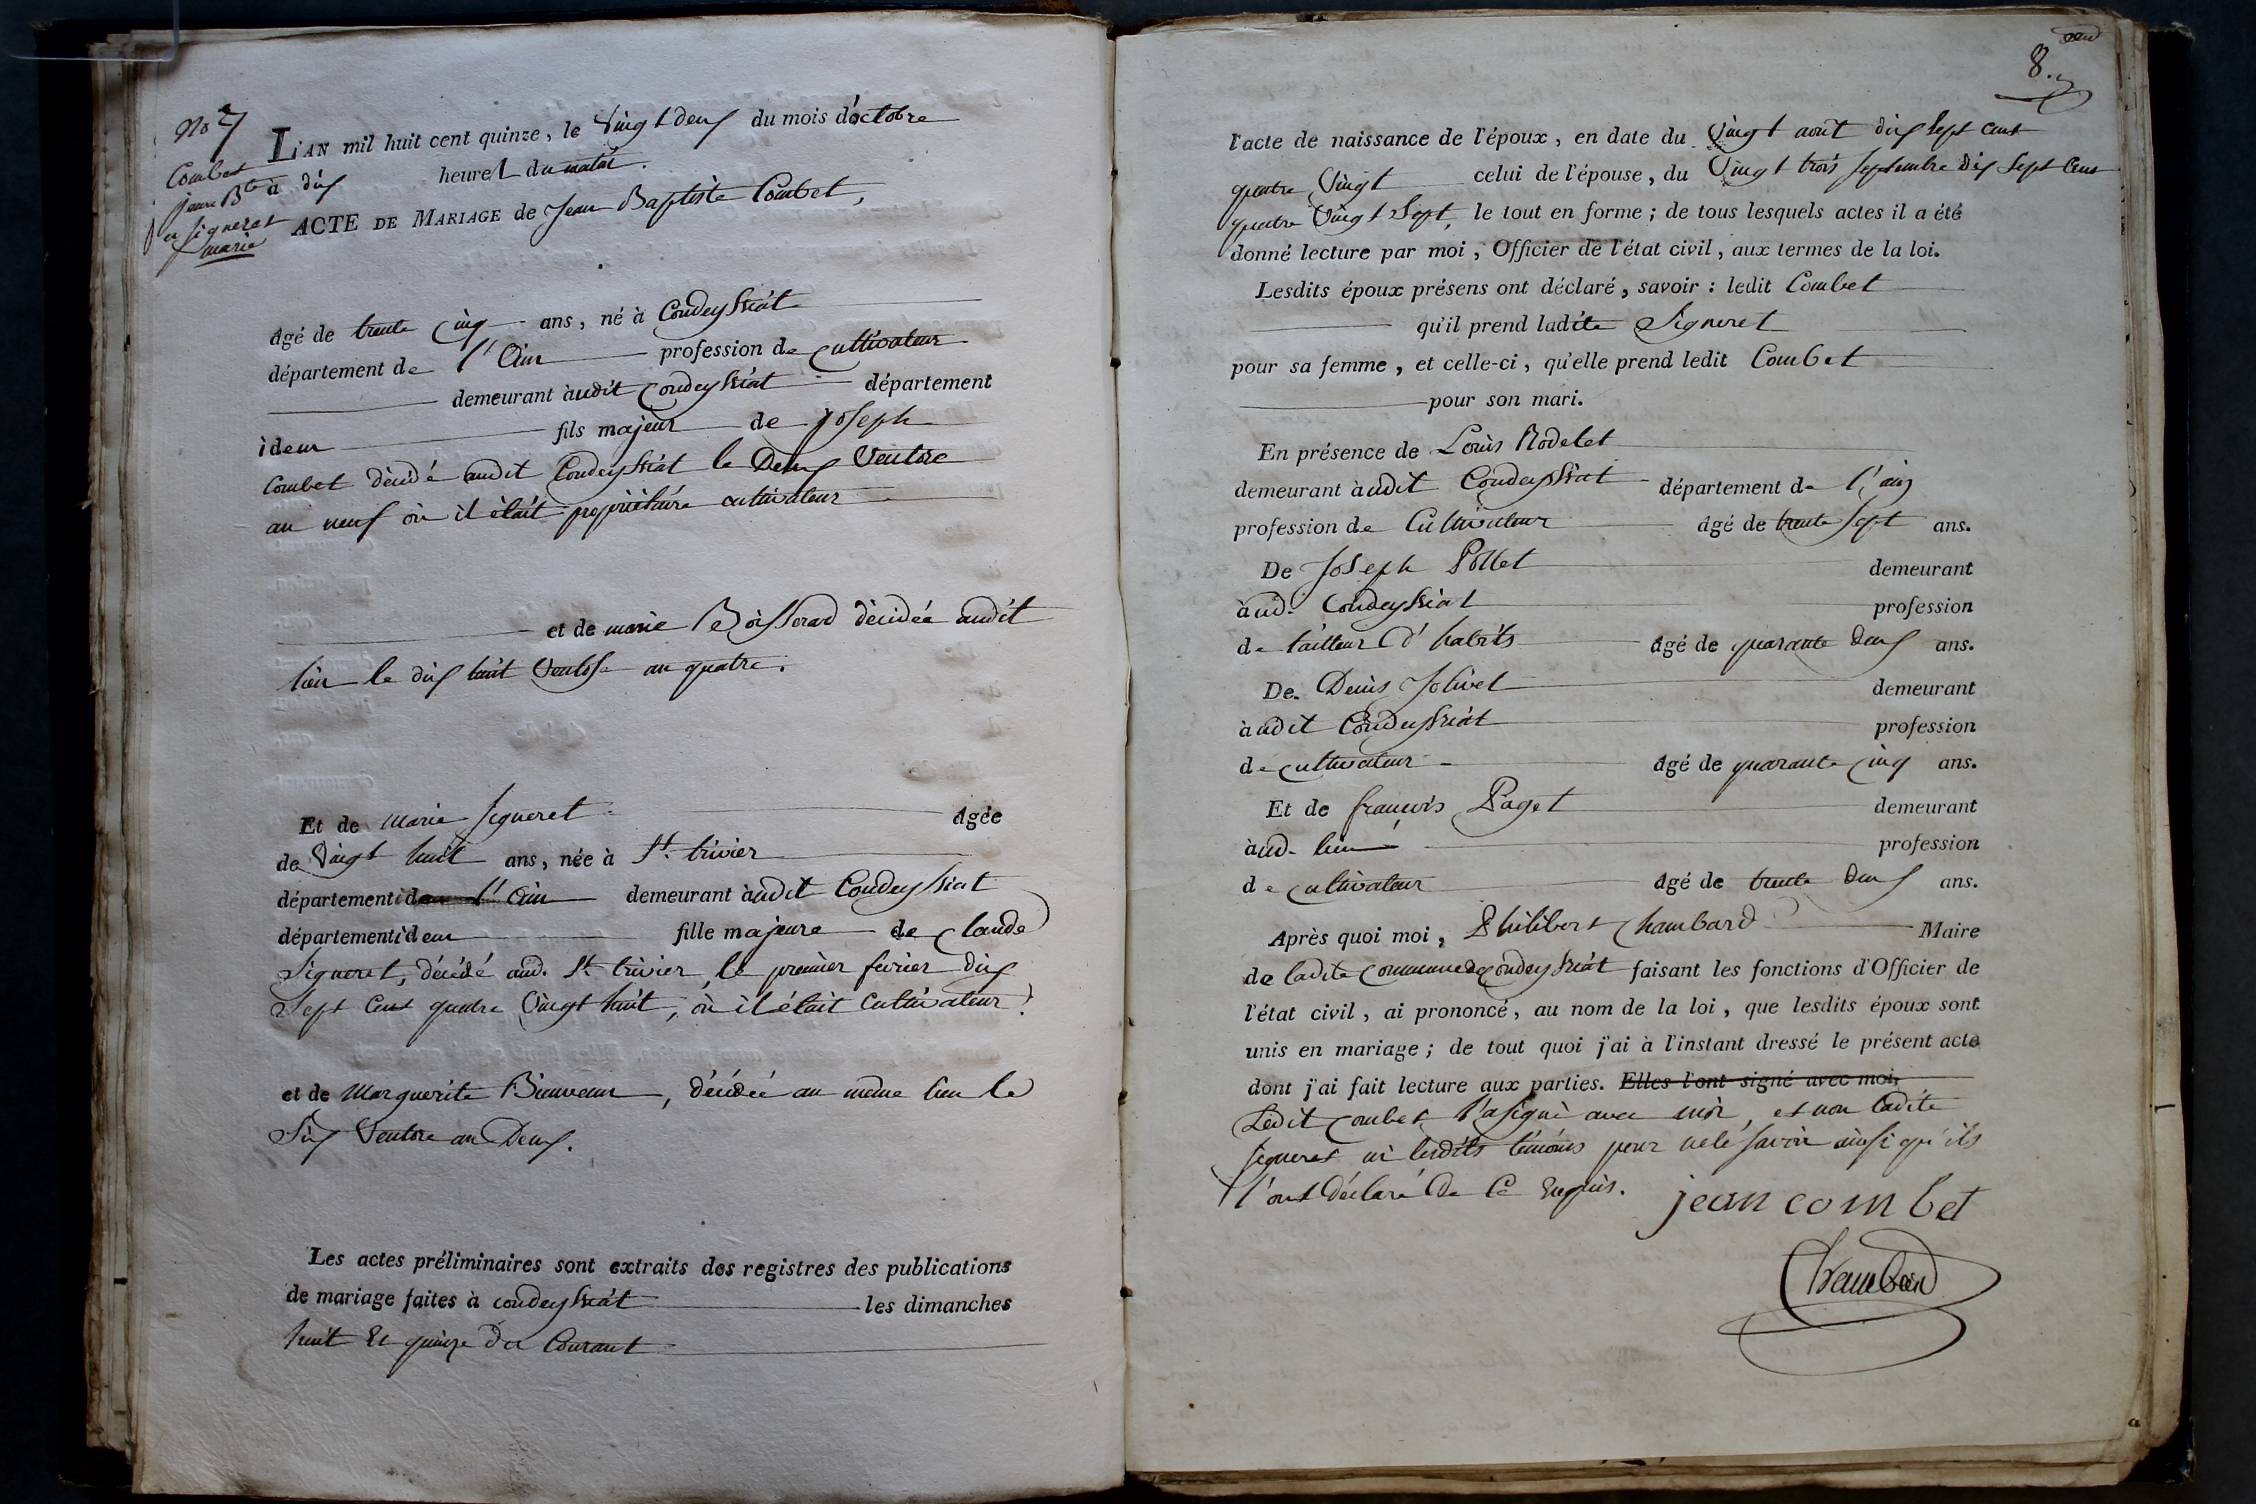 No 7
Combet
jean Bte
et Signeret
marie
L'AN mil huit cent quinze, le Vingt deux du mois d'octobre
à dix heures du matin.
ACTE DE MARIAGE de Jean Baptiste Combet,
Agé de trente cinq ans, né à Condeyssiat
département de l'Ain profession de cultivateur
demeurant àudit Condeyssiat département
idem fils majeur de joseph
Combet décédé audit Condeyssiat le Deux Ventose
an neuf où il était propriétaire cultivateur
et de marie Boisserard décédée audit
lieu le dix huit Ventose an quatre.
Et de Marie Signeret Agée
de Vingt huit ans, née à St. trivier
département idem l'Ain demeurant àudit Condeyssiat
département idem fille majeure de Claude
Signeret, décédé aud. St. trivier, le premier fevrier dix
Sept Cent quatre Vingt huit, où il était Cultivateur.
et de Marguerite Bienvenu, décédée au même lieu le
Six Ventose an Deux.
Les actes préliminaires sont extraits des registres des publications
de mariage faites à condeyssiat les dimanches
huit Et quinze du Courant
8.
l'acte de naissance de l'époux, en date du Vingt août dix sept cent
quatre Vingt celui de l'épouse, du Vingt trois septembre dix Sept Cent
quatre Vingt Sept, le tout en forme; de tous lesquels actes il a été
donné lecture par moi, Officier de l'état civil, aux termes de la loi.
Lesdits époux présens ont déclaré, savoir: ledit Combet
qu'il prend ladite Signeret
pour sa femme, et celle-ci, qu'elle prend ledit Combet
pour son mari.
En présence de Louis Rodelet
demeurant àudit Condeyssiat département de l'ain
profession de Cultivateur Agé de trente Sept ans.
De Joseph Pollet demeurant
àud. Condeyssiat profession
de tailleur d'habits Agé de quarante deux ans.
De Denis Jolivet demeurant
àudit Condeyssiat profession
de cultivateur Agé de quarante Cinq ans.
Et de françois Paget demeurant
àud. lieu profession
de cultivateur Agé de trente Deux ans.
Après quoi moi, Philibert Chambard Maire
de ladite Commune de Condeyssiat faisant les fonctions d'Officier de
l'état civil, ai prononcé, au nom de la loi, que lesdits époux sont
unis en mariage; de tout quoi j'ai à l'instant dressé le présent acte
dont j'ai fait lecture aux parties. Elles l'ont signé avec moi.
Ledit Combet l'a signé avec moi, et non ladite
Signeret ni lesdits témoins pour ne le savoir ainsi qu'ils
l'ont déclaré de Ce Enquis.
jean combet
Chambard